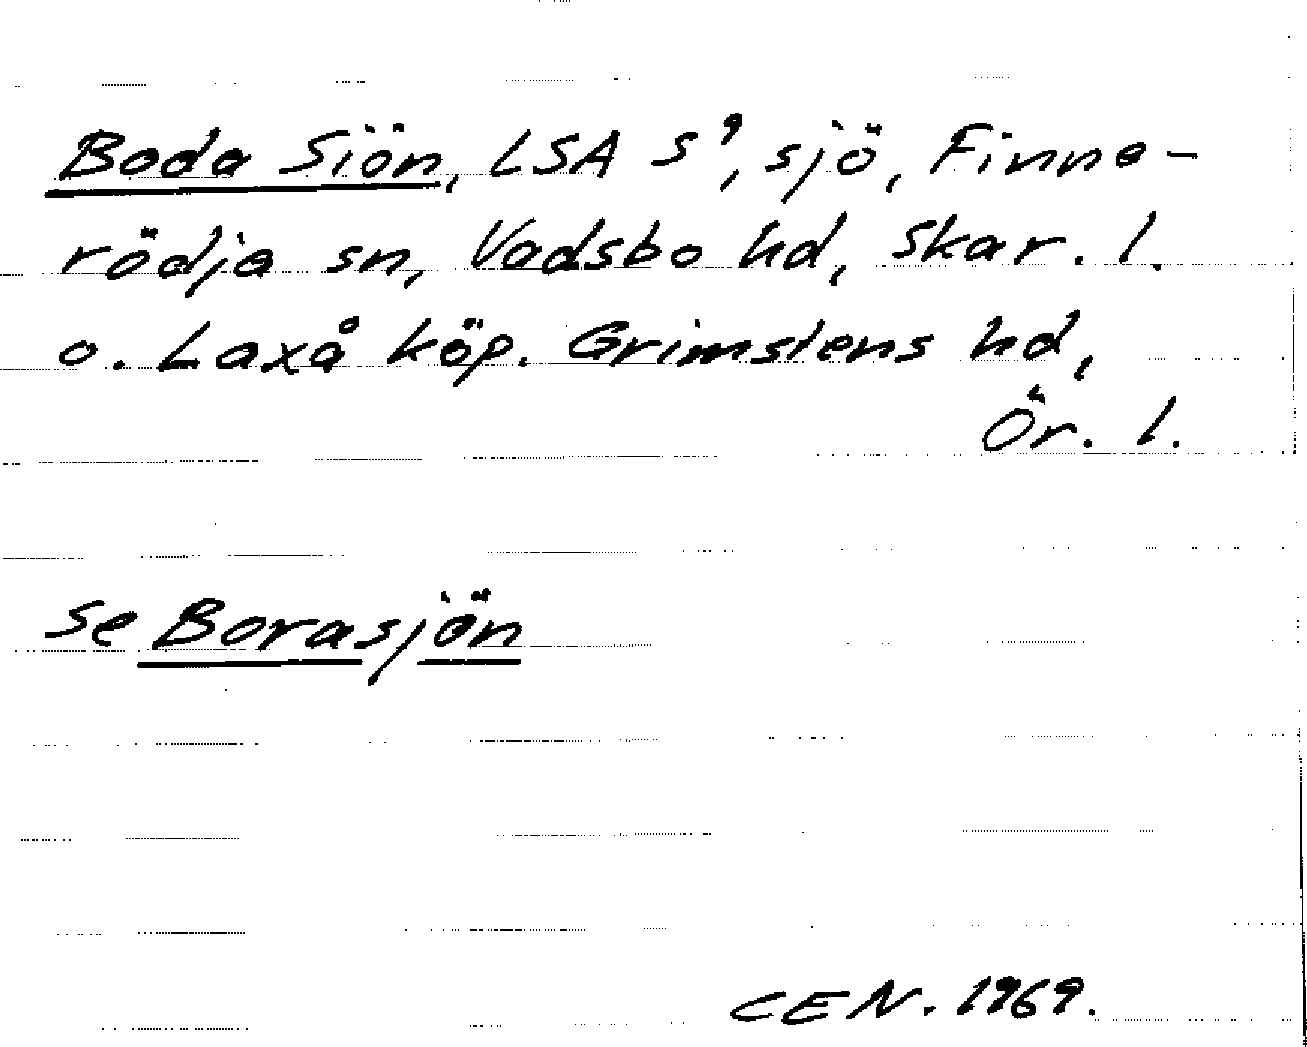 Boda Siön, LSA S⁹, sjö, Finne-
rödja sn, Vadsbo hd, Skar. l.
o. Laxå köp. Grimstens hd,
Ör. l.
se Borasjön
CEN. 1969.